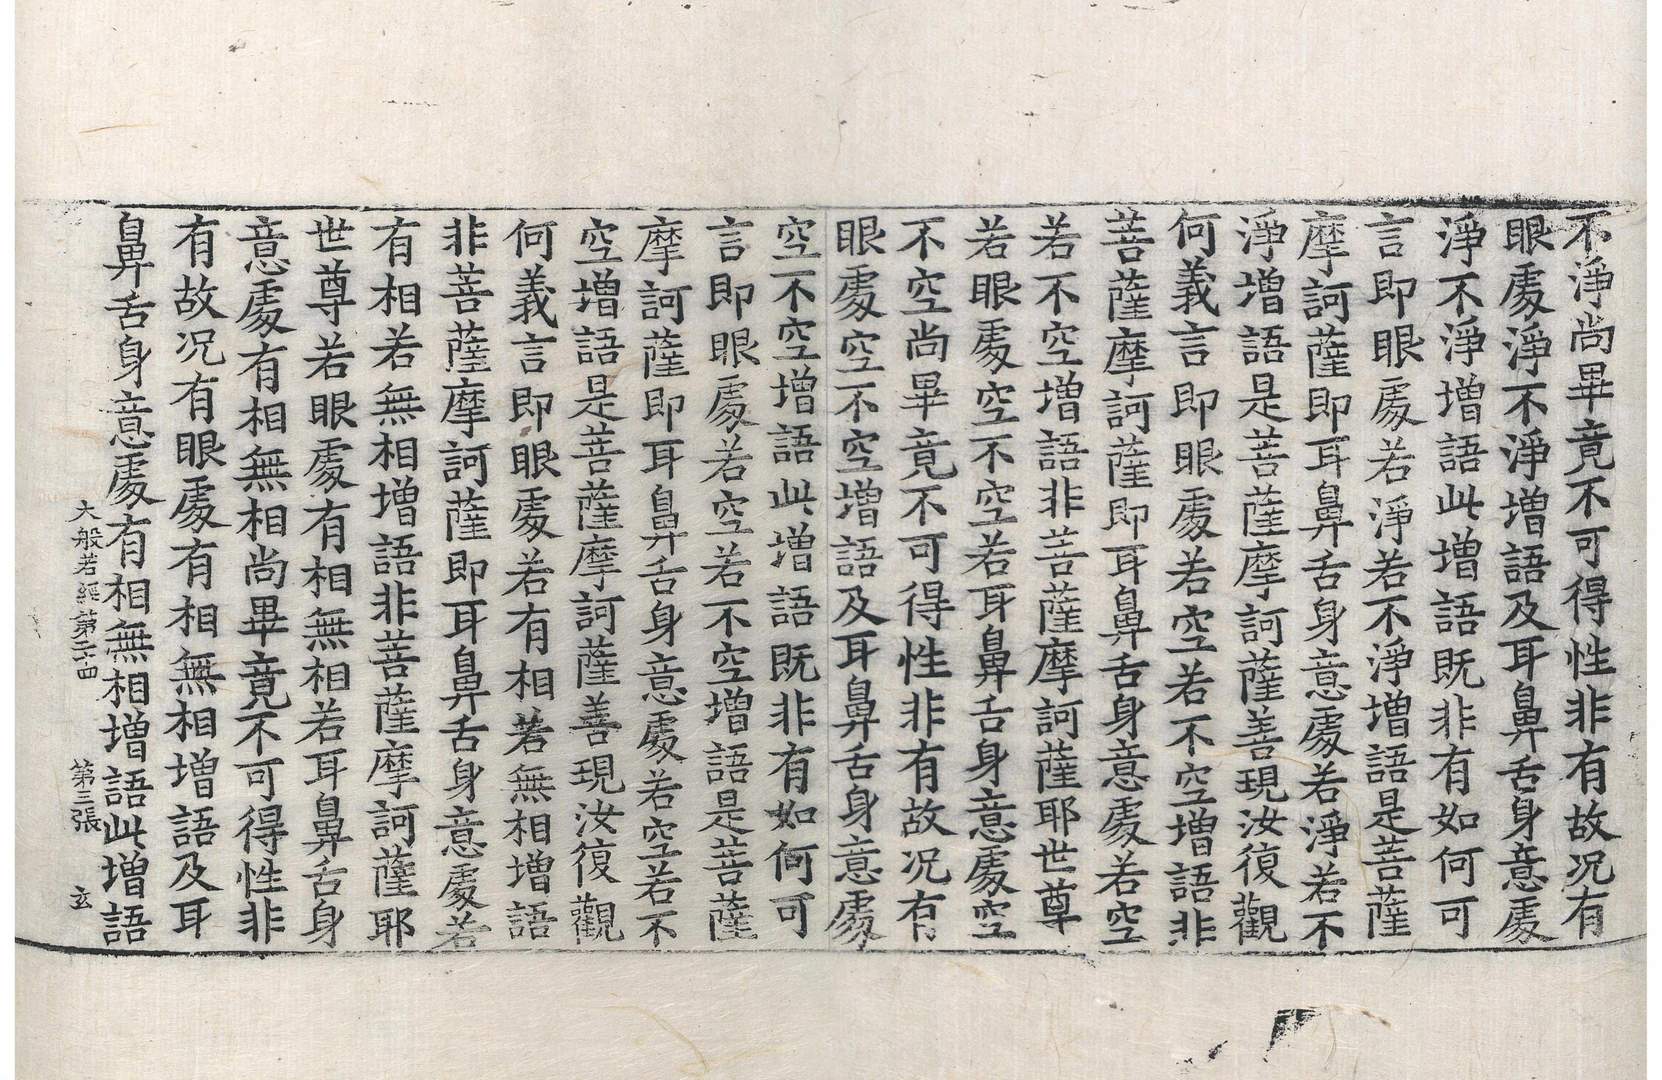 不淨尚畢竟不可得性非有故况有
眼處淨不淨增語及耳鼻舌身意處
淨不淨增語此增語既非有如何可
言即眼處若淨若不淨增語是菩薩
摩訶薩即耳鼻舌身意處若淨若不
淨增語是菩薩摩訶薩善現汝復觀
何義言即眼處若空若不空增語非
菩薩摩訶薩即耳鼻舌身意處若空
若不空增語非菩薩摩訶薩耶世尊
若眼處空不空若耳鼻舌身意處空
不空尚畢竟不可得性非有故况有
眼處空不空增語及耳鼻舌身意處
空不空增語此增語既非有如何可
言即眼處若空若不空增語是菩薩
摩訶薩即耳鼻舌身意處若空若不
空增語是菩薩摩訶薩善現汝復觀
何義言即眼處若有相若無相增語
非菩薩摩訶薩即耳鼻舌身意處若
有相若無相增語非菩薩摩訶薩耶
世尊若眼處有相無相若耳鼻舌身
意處有相無相尚畢竟不可得性非
有故况有眼處有相無相增語及耳
鼻舌身意處有相無相增語此增語
大般若經第二十四 第三張 玄